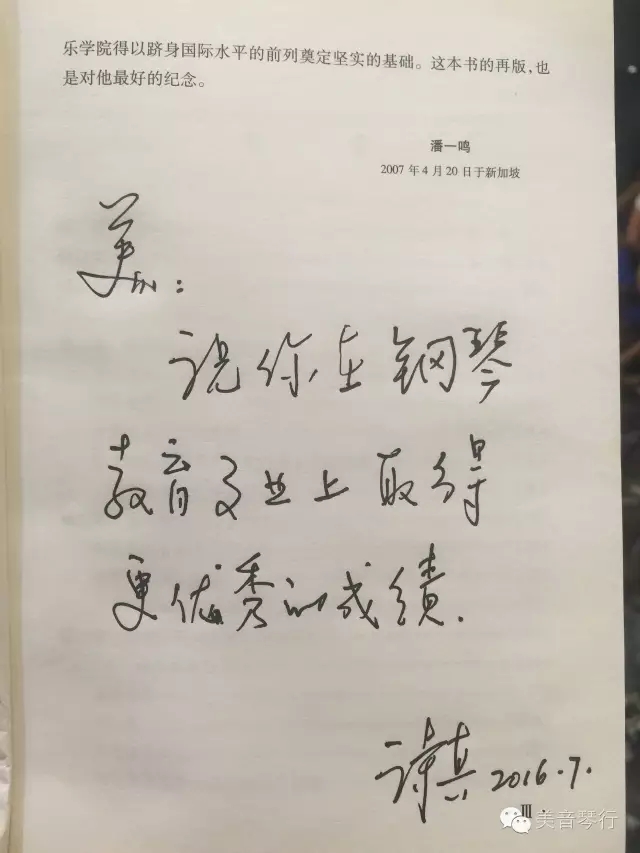 乐学院得以跻身国际水平的前列奠定坚实的基础。这本书的再版,也
是对他最好的纪念。
潘一鸣
2007年4月20日于新加坡
祝你在钢琴
教育事业上取得
更优秀的成绩.
2016.7.
III
美音琴行